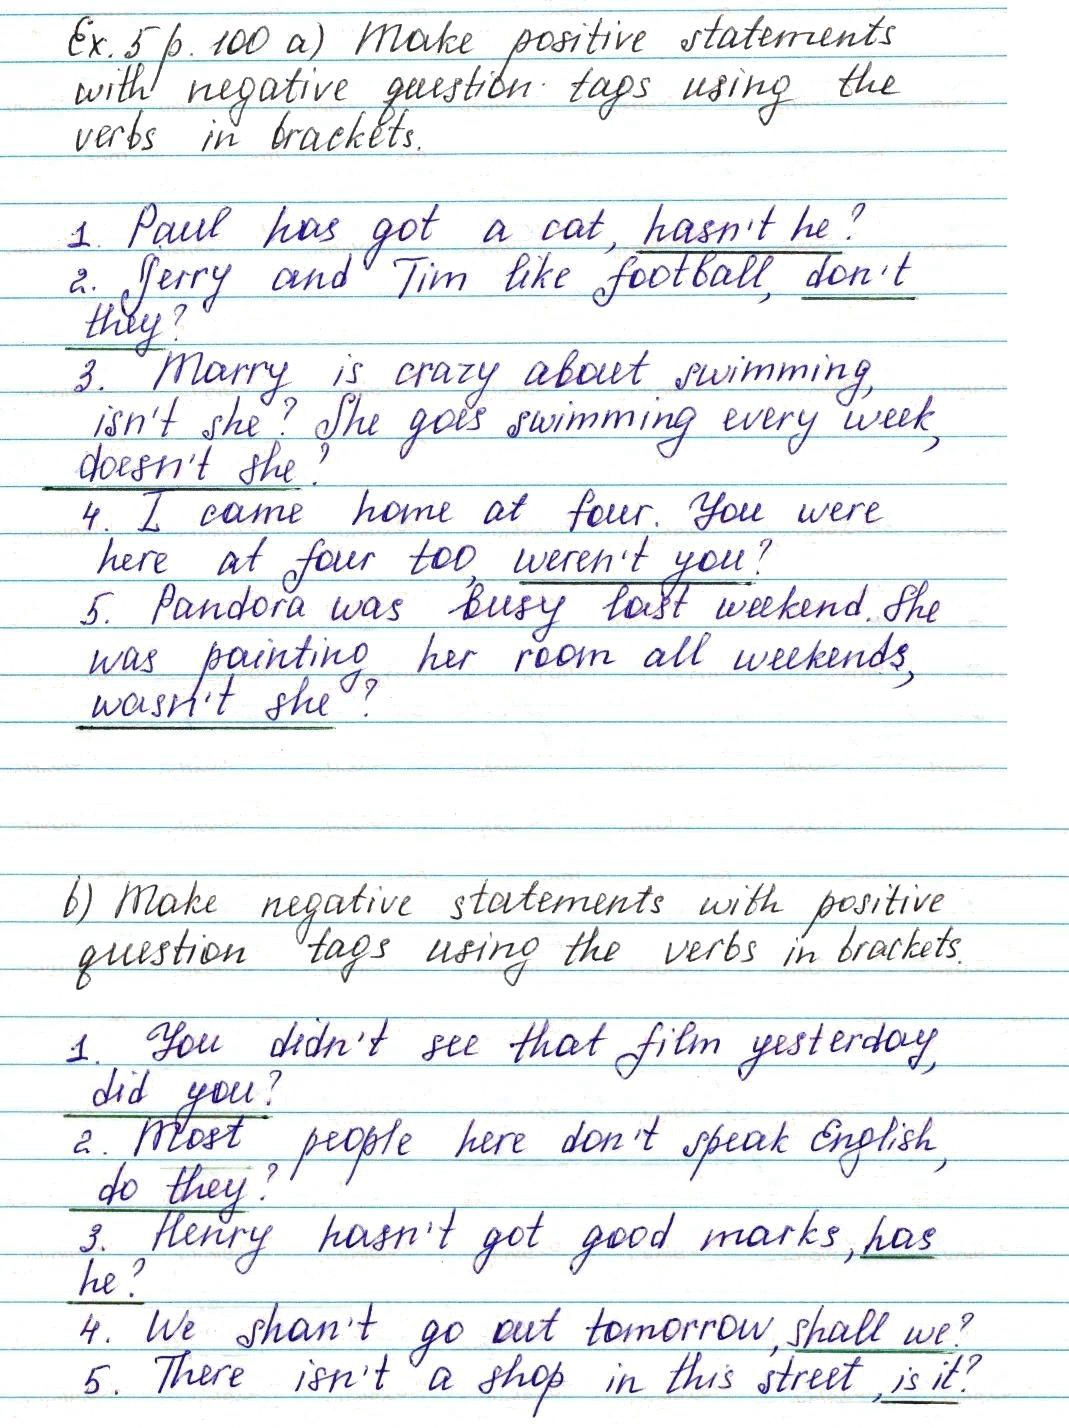 Ex. 5 p. 100 a) Make positive statements
with negative question tags using the
verbs in brackets.
1. Paul has got a cat, hasn't he?
2. Jerry and Tim like football, don't
they?
3. Marry is crazy about swimming,
isn't she? She goes swimming every week,
doesn't she?
4. I came home at four. You were
here at four too, weren't you?
5. Pandora was busy last weekend. She
was painting her room all weekends,
wasn't she?
b) Make negative statements with positive
question tags using the verbs in brackets.
1. You didn't see that film yesterday,
did you?
2. Most people here don't speak English,
do they?
3. Henry hasn't got good marks, has
he?
4. We shan't go out tomorrow, shall we?
5. There isn't a shop in this street, is it?